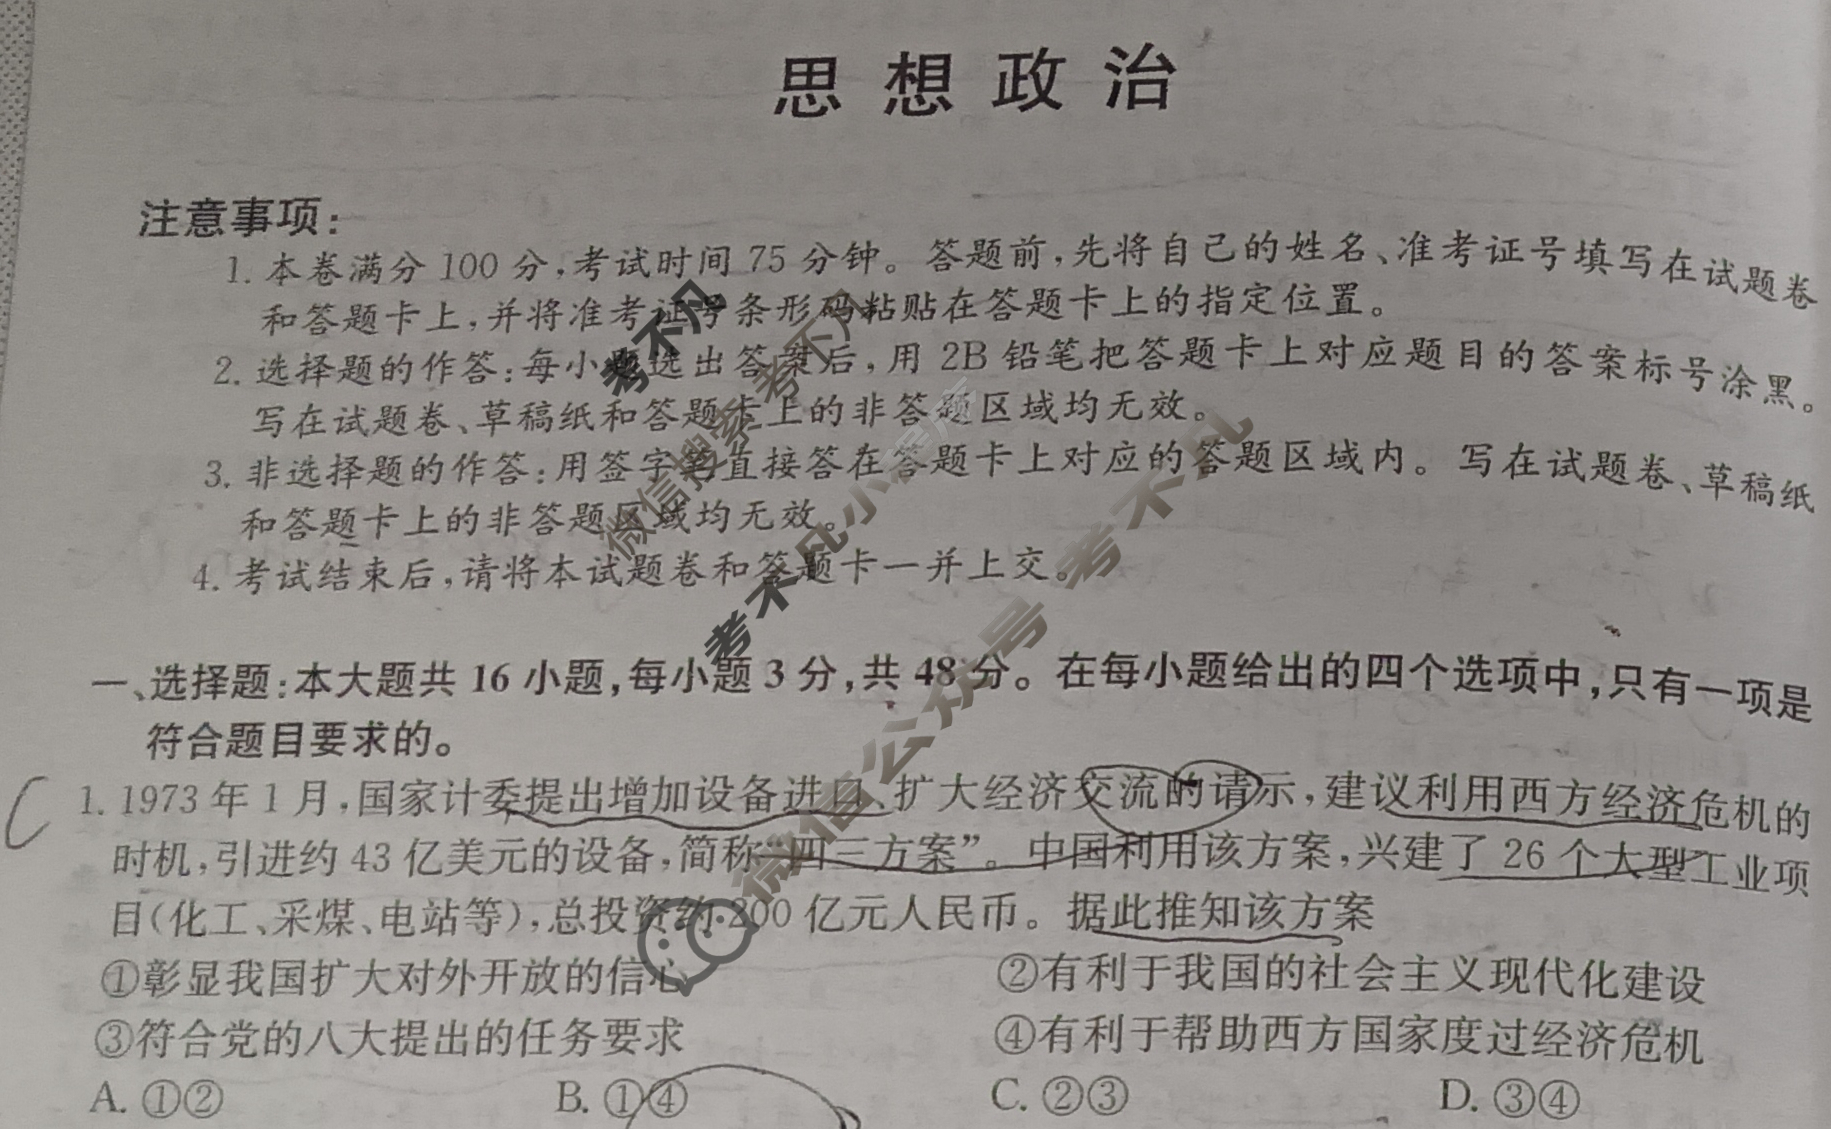 思想政治
注意事项：
1. 本卷满分 100 分，考试时间 75 分钟。答题前，先将自己的姓名、准考证号填写在试题卷
和答题卡上，并将准考证号条形码粘贴在答题卡上的指定位置。
2. 选择题的作答：每小题选出答案后，用 2B 铅笔把答题卡上对应题目的答案标号涂黑。
写在试题卷、草稿纸和答题卡上的非答题区域均无效。
3. 非选择题的作答：用签字笔直接答在答题卡上对应的答题区域内。写在试题卷、草稿纸
和答题卡上的非答题区域均无效。
4. 考试结束后，请将本试题卷和答题卡一并上交。
考不凡
微信搜索考不凡
考不凡小程序
微信公众号 考不凡
一、选择题：本大题共 16 小题，每小题 3 分，共 48 分。在每小题给出的四个选项中，只有一项是
符合题目要求的。
C
1. 1973 年 1 月，国家计委提出增加设备进口、扩大经济交流的请示，建议利用西方经济危机的
时机，引进约 43 亿美元的设备，简称“四三方案”。中国利用该方案，兴建了 26 个大型工业项
目（化工、采煤、电站等），总投资约 200 亿元人民币。据此推知该方案
①彰显我国扩大对外开放的信心 ②有利于我国的社会主义现代化建设
③符合党的八大提出的任务要求 ④有利于帮助西方国家度过经济危机
A. ①② B. ①④ C. ②③ D. ③④